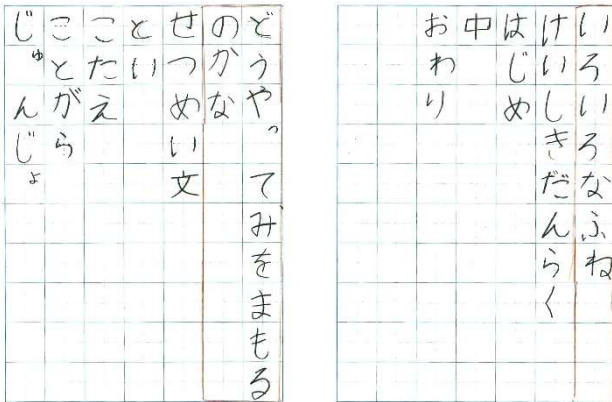 いろいろなふね
けいしきだんらく
はじめ
中
おわり
どうやってみをまもる
のかな
せつめい文
とい
こたえ
ことがら
じゅんじょ